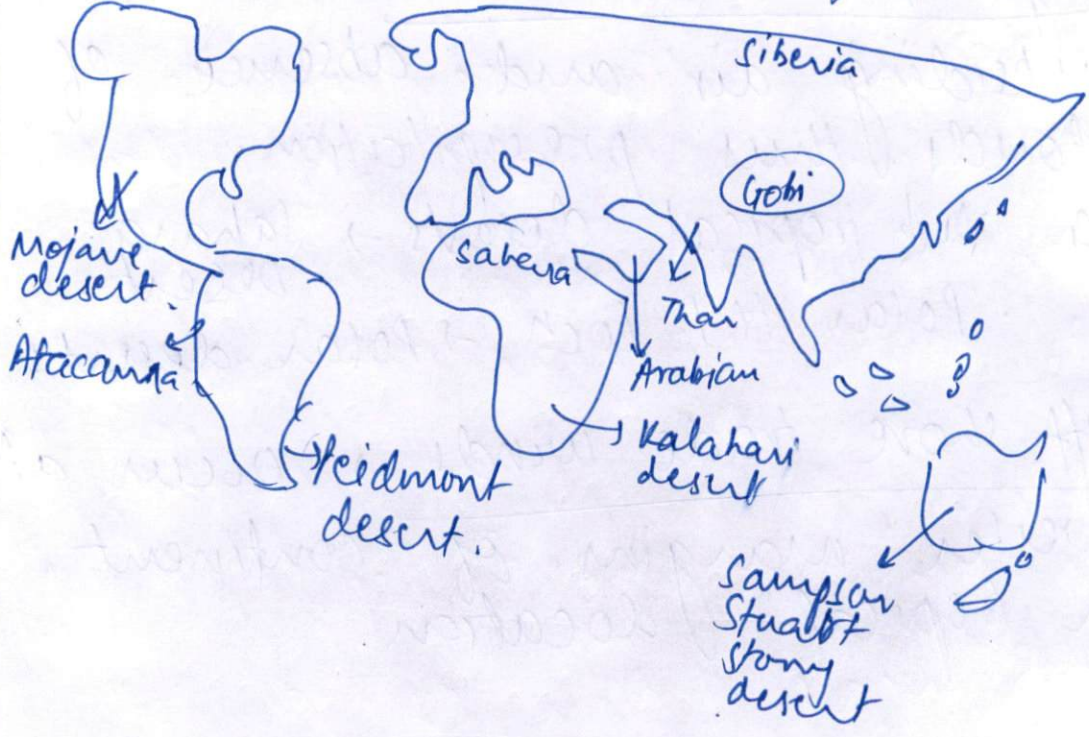 Siberia
Gobi
Mojave
desert.
Sahera
Thar
Atacama
Arabian
Kalahari
desert
Peidmont
desert.
Sampson
Stuart
Stony
desert